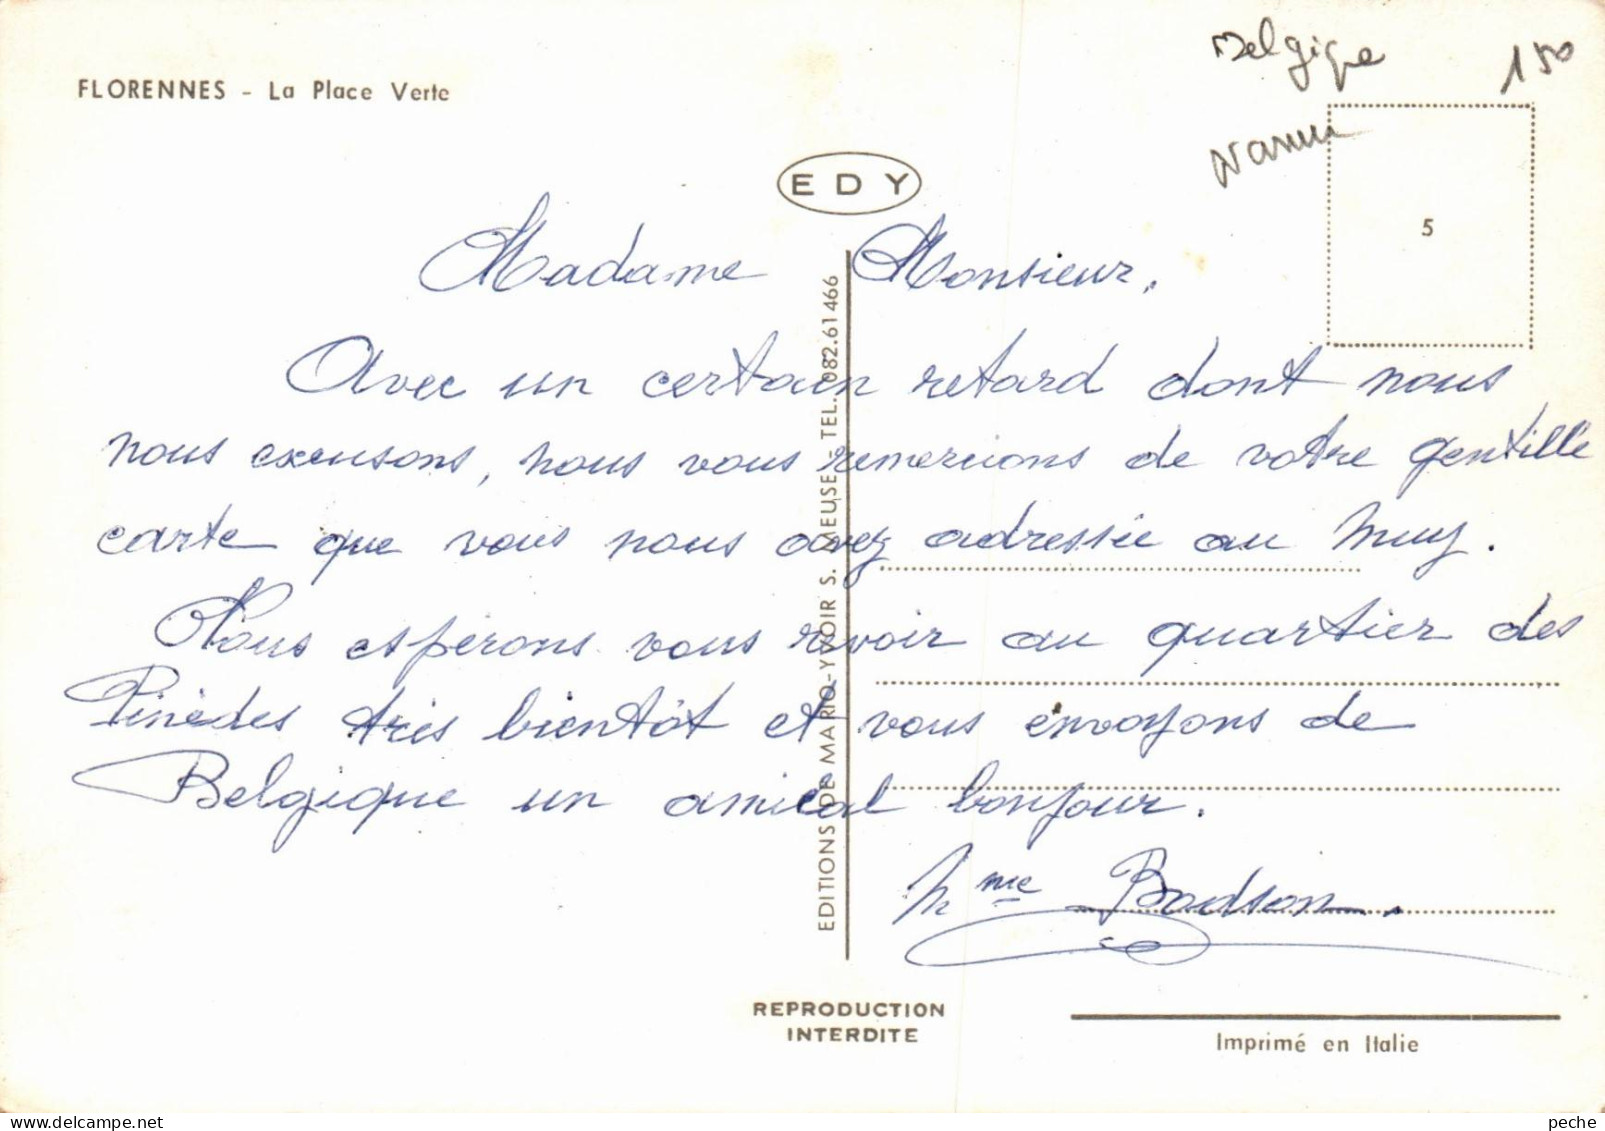 FLORENNES - La Place Verte
Belgique
150
Namur
EDY
5
Madame Monsieur.
Avec un certain retard dont nous
nous excusons, nous vous remercions de votre gentille
carte que vous nous avez adressée au Muy.
Nous espérons vous revoir au quartier des
Pinèdes très bientôt et vous envoyons de
Belgique un amical bonjour.
Mme Bodson.
EDITIONS DE MARIO-YVOIR S. MEUSE-TEL. 082.61466
REPRODUCTION
INTERDITE
Imprimé en Italie
delcampe.net
peche